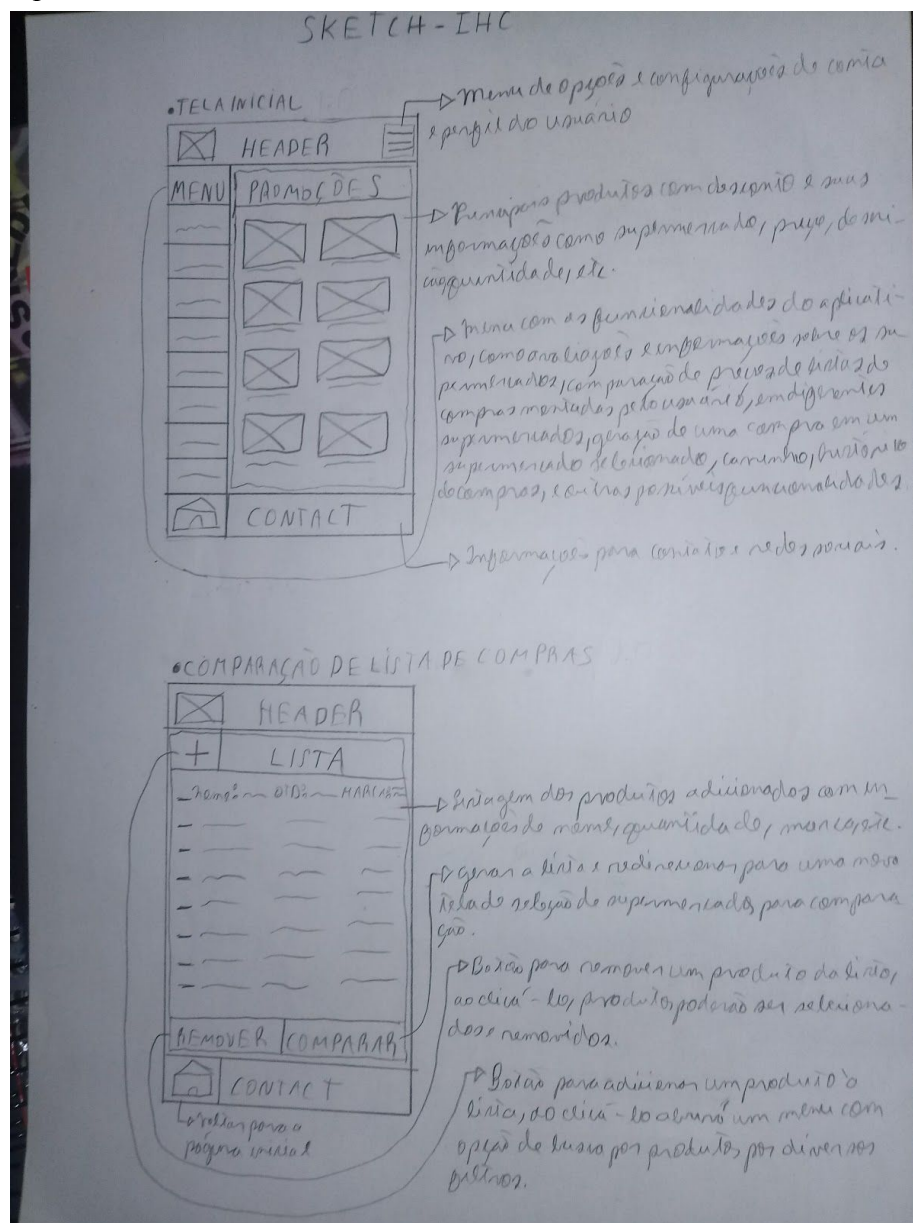 SKETCH-IHC
•TELA INICIAL
HEADER
MENU
PROMOÇÕES
CONTACT
Menu de opções e configurações de conta
e perfil do usuário
Principais produtos com desconto e suas
informações como supermercado, preço, descri-
ção quantidade, etc.
menu com as funcionalidades do aplicati-
vo, como avaliações e informações sobre os su-
permercados, comparação de preços de listas de
compras montadas pelo usuário, em diferentes
supermercados, geração de uma compra em um
supermercado selecionado, carrinho, histórico
de compras, e outras possíveis funcionalidades
Informações para contato e redes sociais.
•COMPARAÇÃO DE LISTA DE COMPRAS
HEADER
+ LISTA
- nome: QTD: MARCA:
REMOVER COMPARAR
CONTACT
voltar para a
página inicial
Listagem dos produtos adicionados com in-
formações de nome, quantidade, marca, etc.
Gerar a lista e redirecionar para uma nova
tela de seleção de supermercados para compara
ção.
Botão para remover um produto da lista,
ao clicá-lo, produtos poderão ser seleciona-
dos e removidos.
Botão para adicionar um produto à
lista, ao clicá-lo abrirá um menu com
opção de busca por produtos por diversos
filtros.